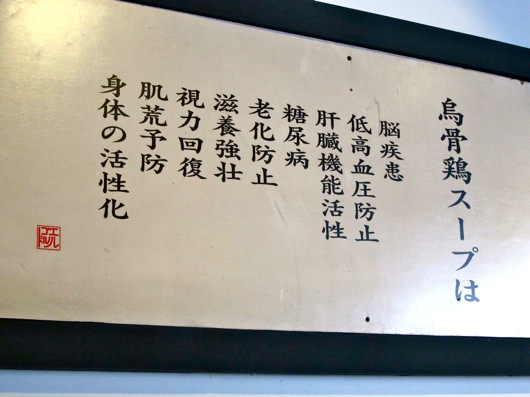 烏骨鶏スープは
脳疾患
低高血圧防止
肝臓機能活性
糖尿病
老化防止
滋養強壮
視力回復
肌荒予防
身体の活性化